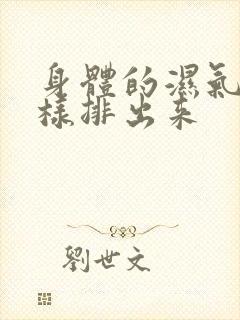 身體的濕氣
樣排出来
劉世文